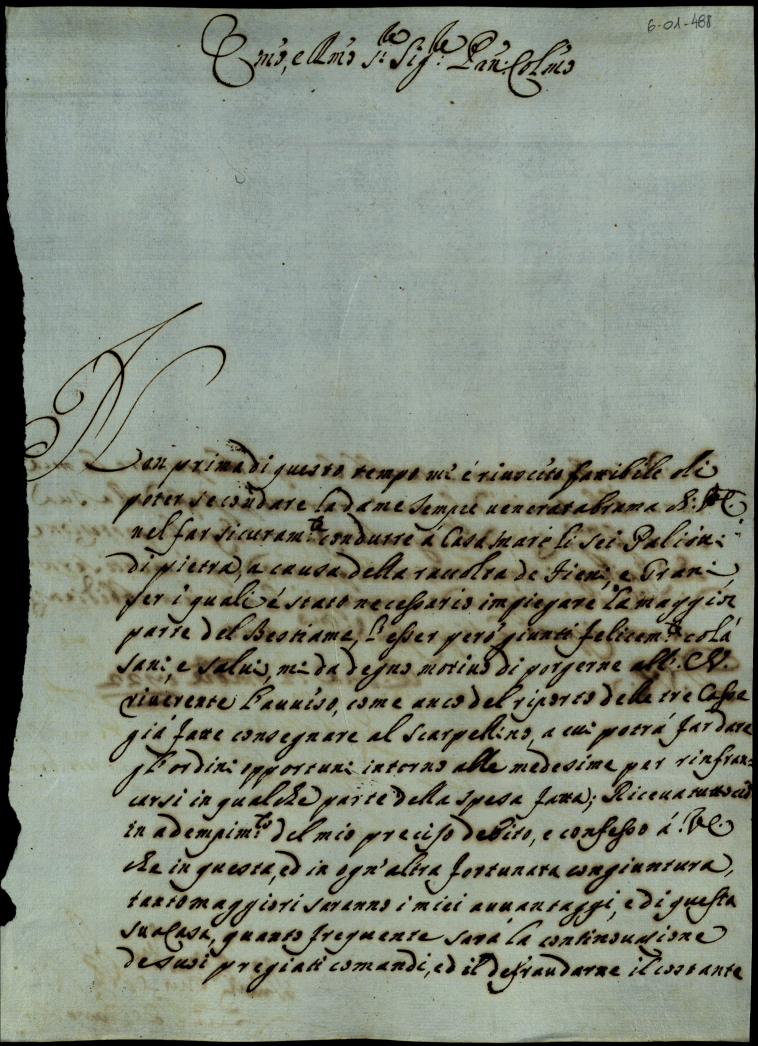 6-01-488
Em̃o, e Rm̃o Sig.re Pãn: Colm̃o
Non prima di questo tempo m'è riuscito fattibile di
poter secondare la da me sempre venerata brama di V.E.
nel far sicuram.te condurre à Casamari li sei Palioni
di pietra, a causa della raccolta de Fieni, e Grani
per i quali è stato necessario impiegare la maggior
parte del Bestiame, L'esser però giunti felicem.te colà
sani, e salvi, mi da degno motivo di porgerne all' E.V.
riverente l'avviso, come anco del riporto delle tre Casse
già fatte consegnare al scarpellino, a cui potrà far dare
gl'ordini opportuni intorno alle medesime per rinfran:
carsi in qualche parte della spesa fatta; Riceva tutto ciò
in adempim.to del mio preciso debito, e confesso à V.E.
che in questa, ed in ogn'altra fortunata congiuntura,
tanto maggiori saranno i miei avvantaggi, e di questa
sua Casa, quanto frequente sarà la continovazione
de suoi pregiati comandi, ed il defraudarne il costante